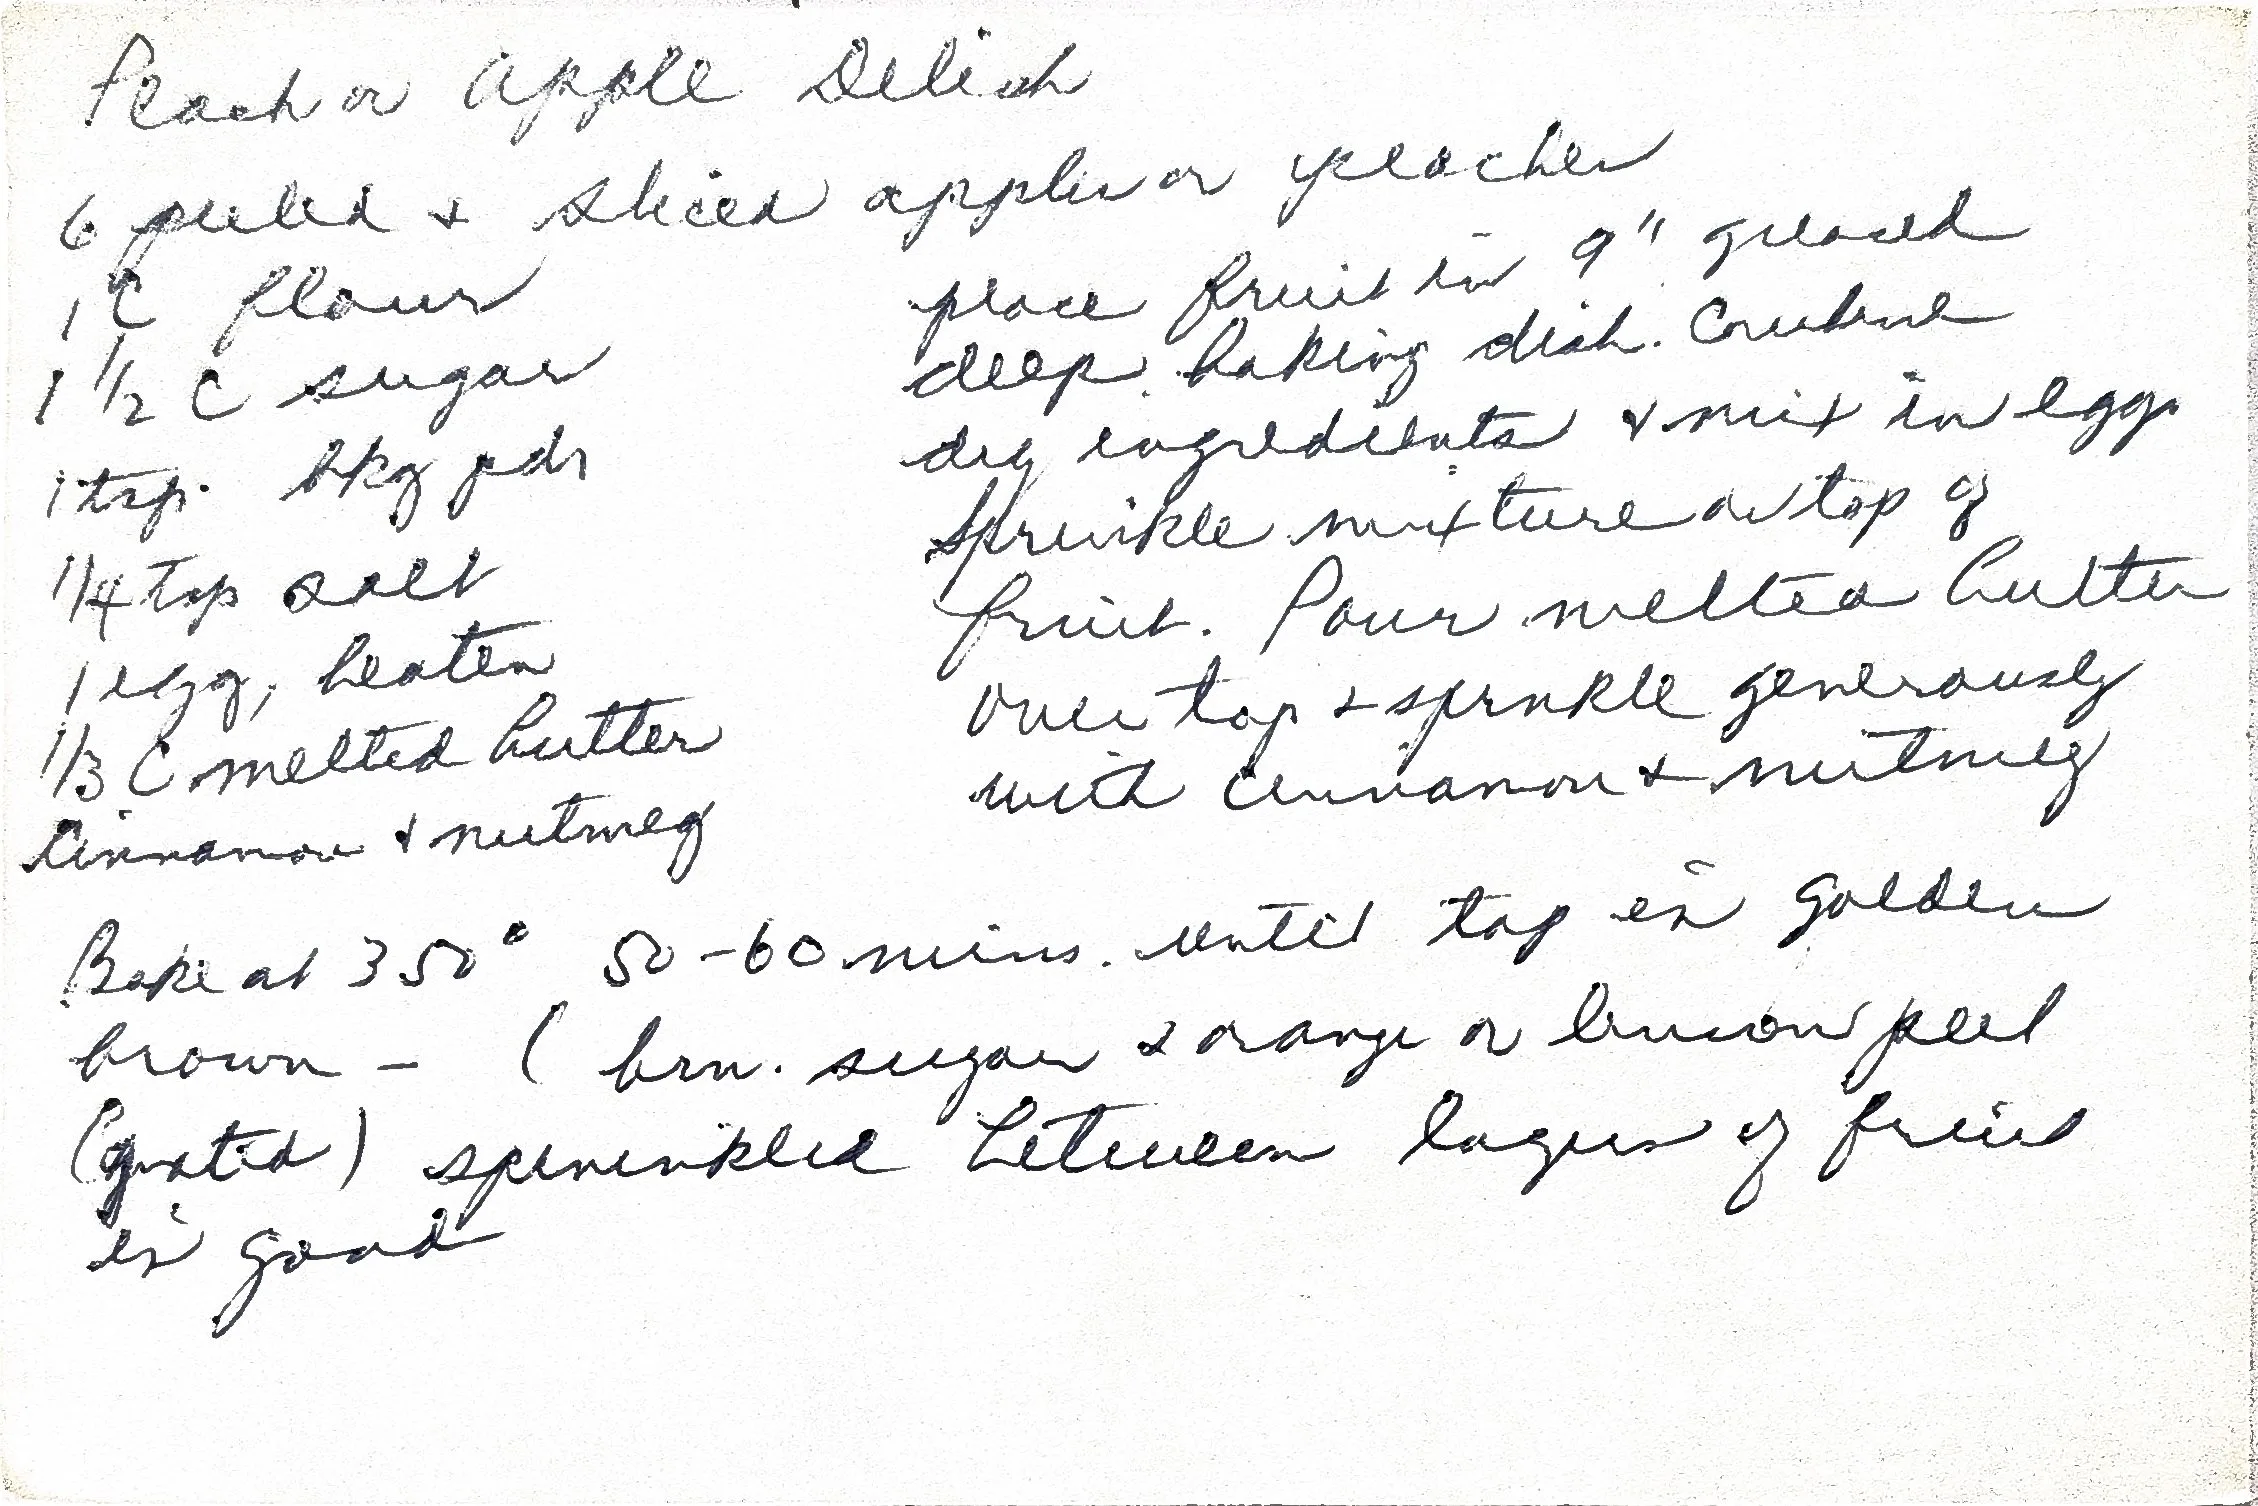 Peach or Apple Delish
6 peeled & sliced apples or peaches
1 C flour
1 1/2 C sugar
1 tsp. bkg pdr
1/4 tsp salt
1 egg, beaten
1/3 C melted butter
Cinnamon & nutmeg
place fruit in 9" greased
deep baking dish. Combine
dry ingredients & mix in egg.
Sprinkle mixture on top of
fruit. Pour melted butter
over top & sprnkle generously
with cinnamon & nutmeg
Bake at 350° 50-60 mins. until top is golden
brown - ( brn. sugar & orange or lemon peel
(grated) sprinkled between layers of fruit
is good